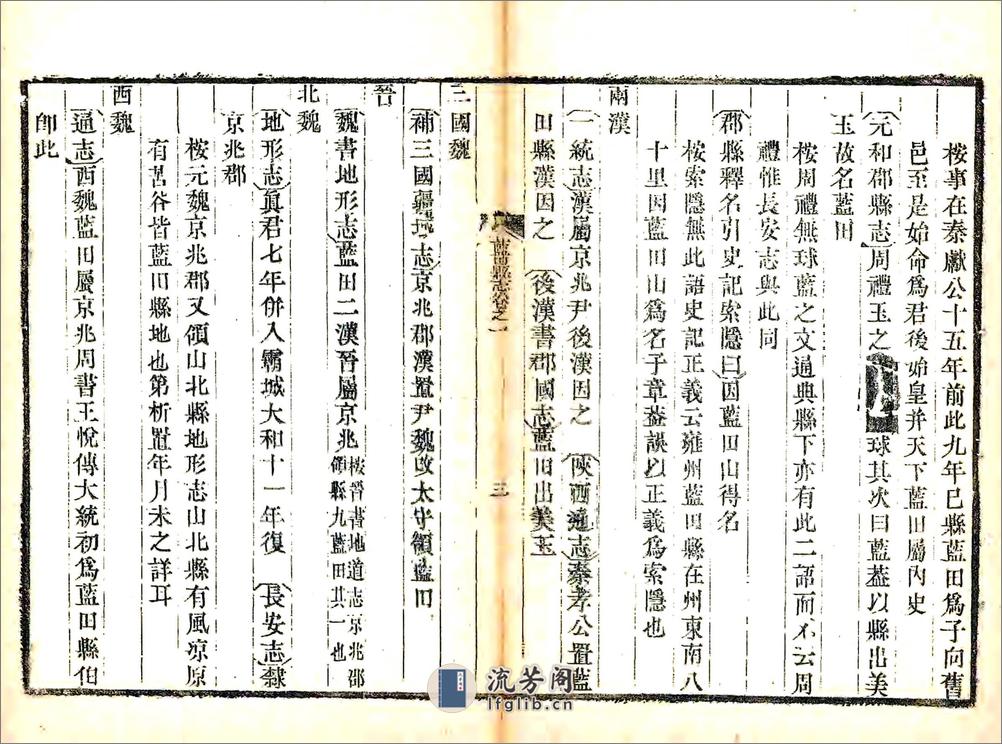 桉事在秦獻公十五年前此九年已縣藍田爲子向舊
邑至是始命爲君後始皇并天下藍田屬內史
元和郡縣志周禮玉之
球其次曰藍葢以縣出美
玉故名藍田
桉周禮無球藍之文通典縣下亦有此二語而不云周
禮惟長安志與此同
郡縣釋名引史記索隱曰因藍田山得名
桉索隱無此語史記正義云雍州藍田縣在州東南八
十里因藍田山爲名子章葢誤以正義爲索隱也
兩漢
一統志漢屬京兆尹後漢因之 陝西通志秦孝公置藍
田縣漢因之 後漢書郡國志藍田出美玉
藍田縣志卷之一 三
三國魏
補三國疆域志京兆郡漢置尹魏改太守領藍田
晉
魏書地形志藍田二漢晉屬京兆 桉晉書地道志京兆郡
領縣九藍田其一也
北魏
地形志眞君七年併入霸城大和十一年復 長安志隸
京兆郡
桉元魏京兆郡又領山北縣地形志山北縣有風凉原
有苦谷皆藍田縣地也第析置年月未之詳耳
西魏
通志西魏藍田屬京兆周書王悅傳大統初爲藍田縣伯
卽此
流芳阁
lfglib.cn